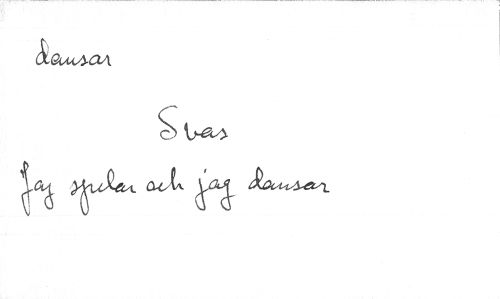 dansar
Svas
Jag spelar och jag dansar